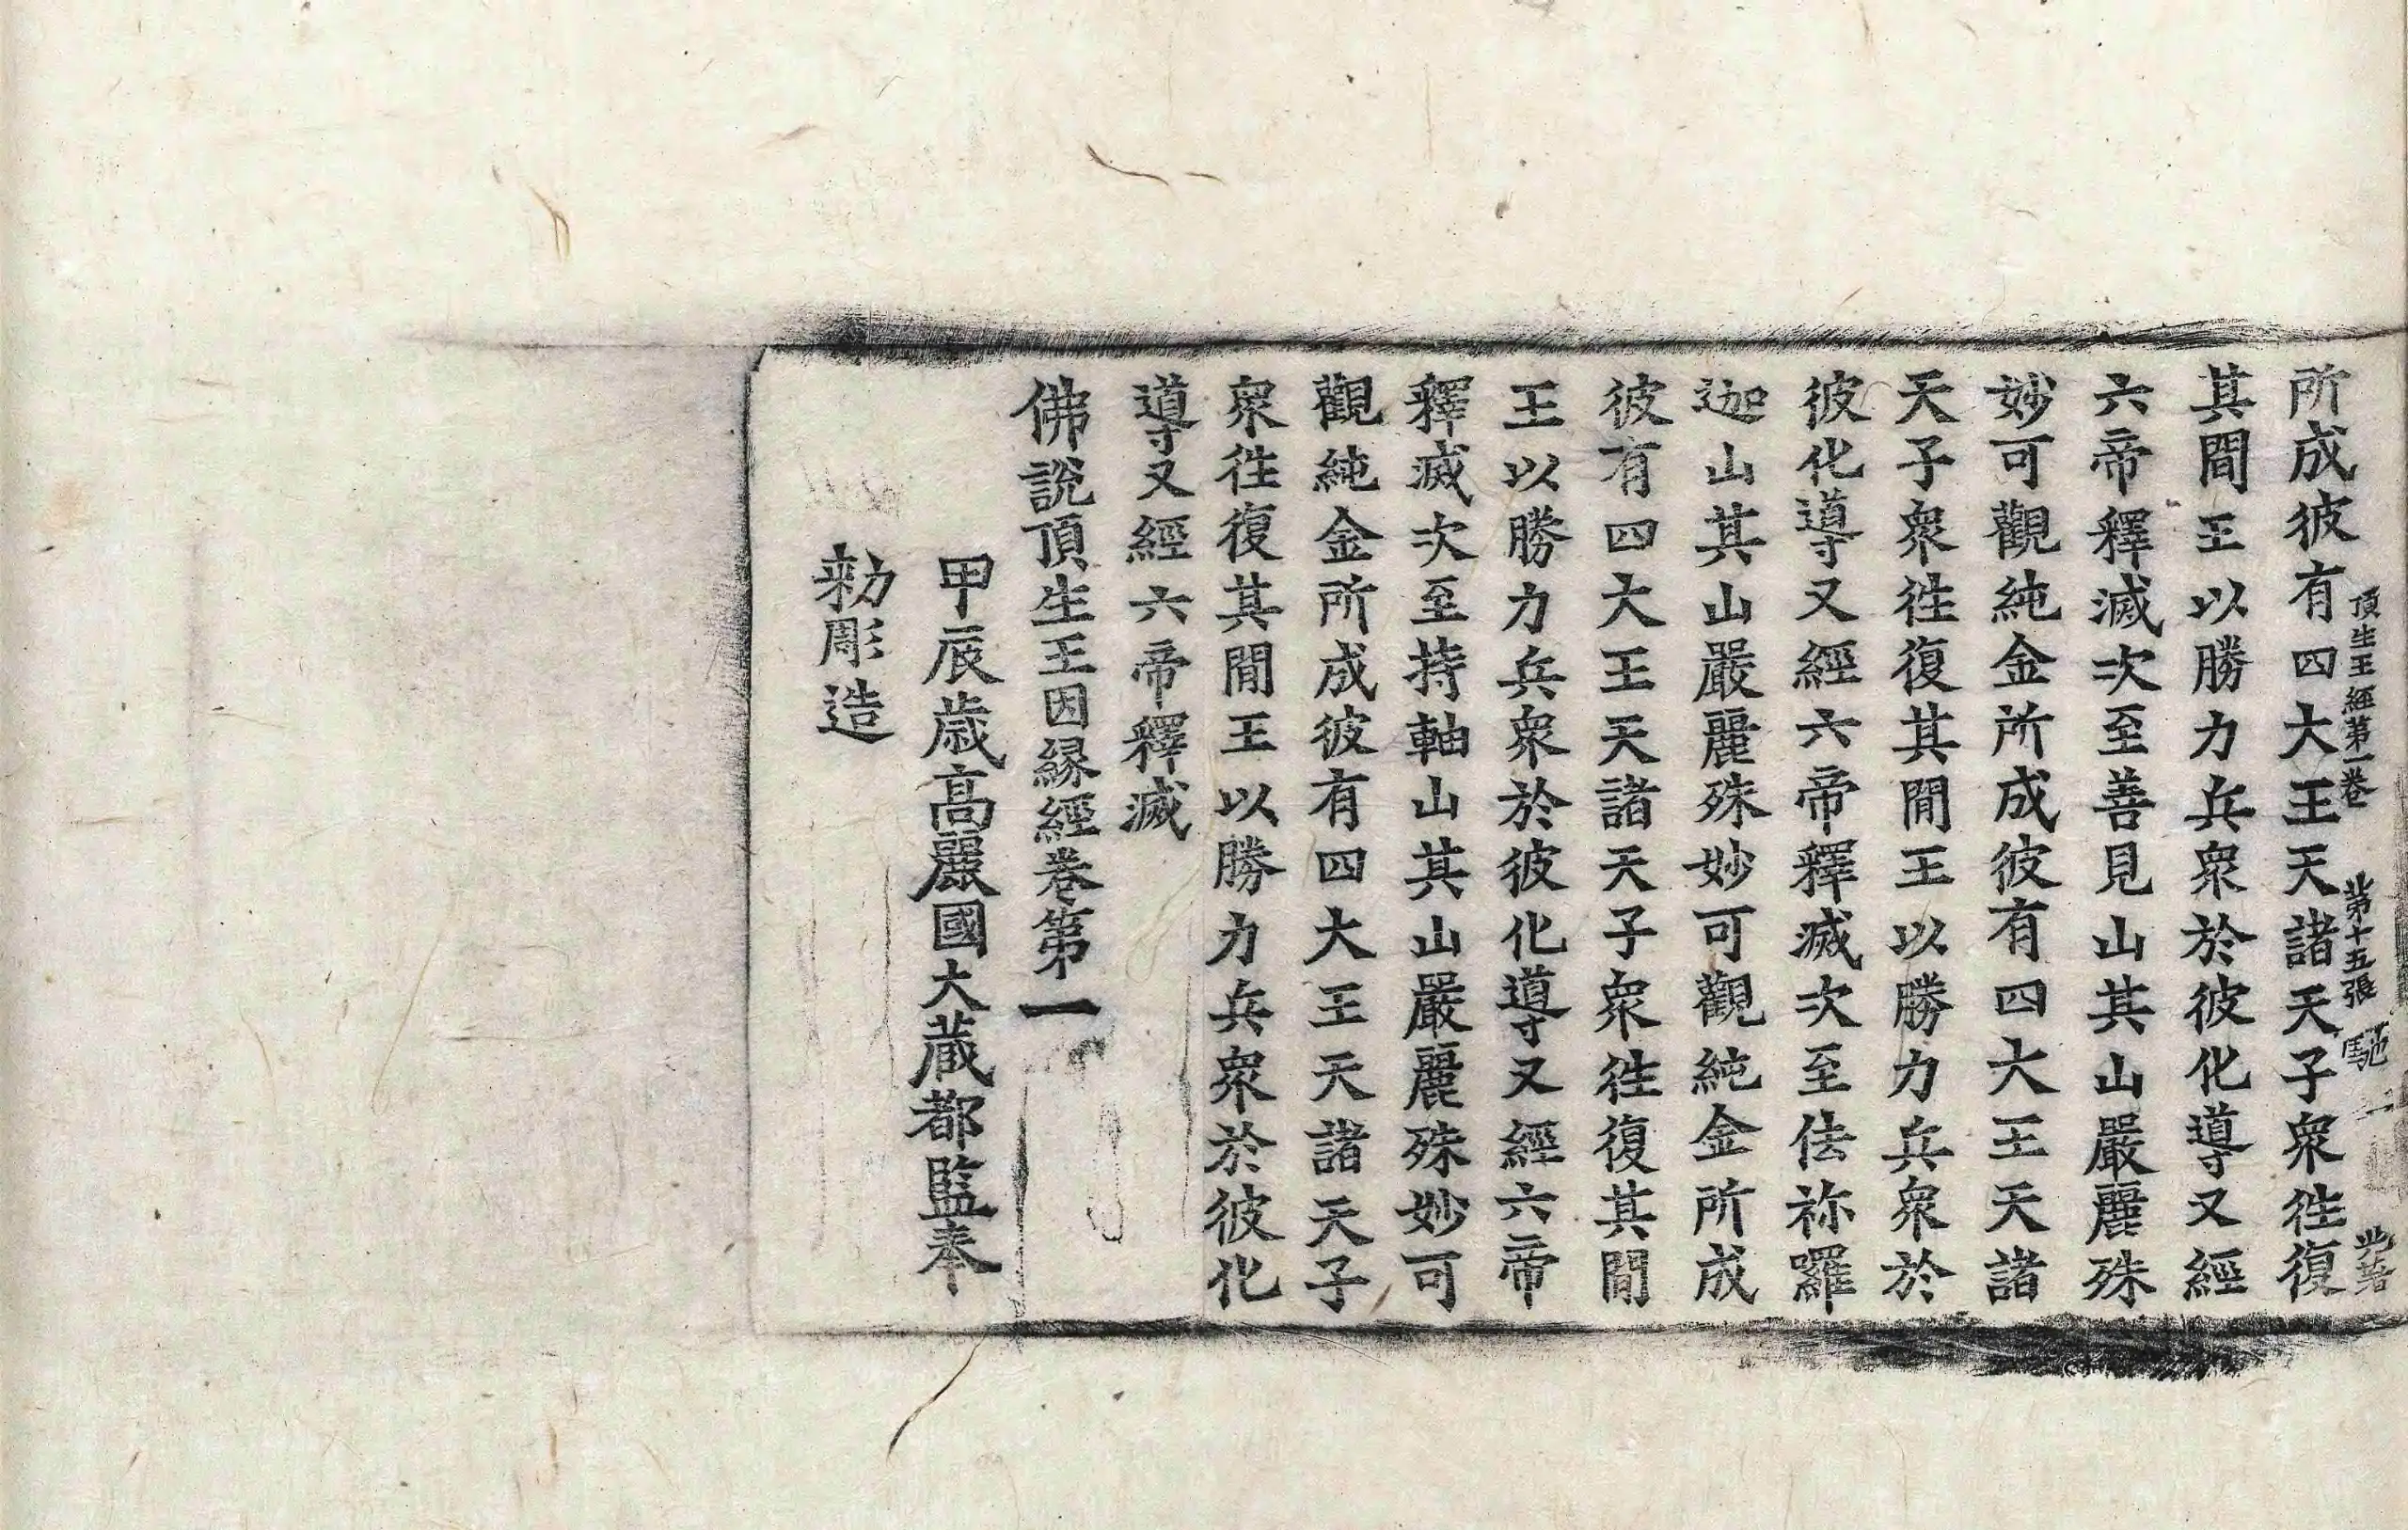 頂生王經第一卷 第十五張 馳
所成彼有四大王天諸天子衆徃復
其間王以勝力兵衆於彼化導又經
六帝釋滅次至善見山其山嚴麗殊
妙可觀純金所成彼有四大王天諸
天子衆徃復其間王以勝力兵衆於
彼化導又經六帝釋滅次至佉祢囉
迦山其山嚴麗殊妙可觀純金所成
彼有四大王天諸天子衆徃復其間
王以勝力兵衆於彼化導又經六帝
釋滅次至持軸山其山嚴麗殊妙可
觀純金所成彼有四大王天諸天子
衆徃復其間王以勝力兵衆於彼化
導又經六帝釋滅
佛說頂生王因緣經卷第一
甲辰歲高麗國大藏都監奉
勑彫造